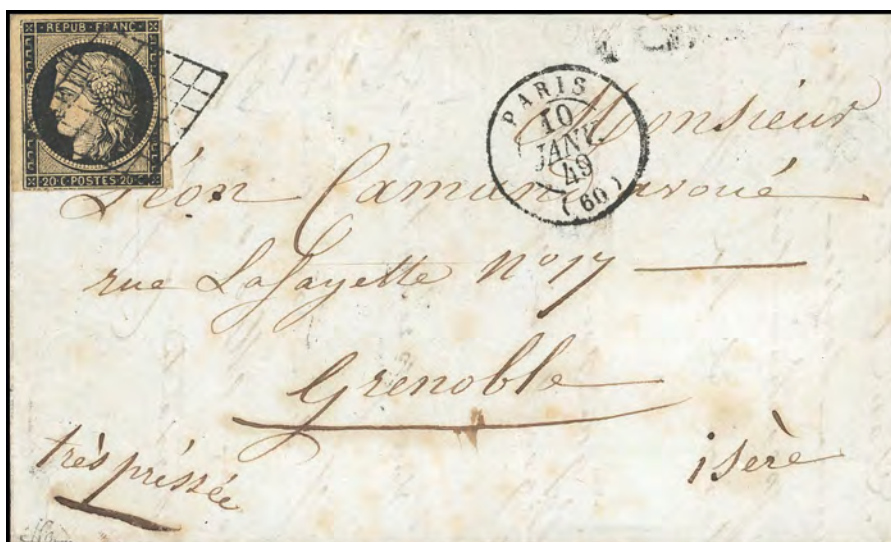 REPUB · FRANC
20 C POSTES 20 C
PARIS
10
JANV.
49
(60)
Monsieur
Léon Camun avoué
rue Lafayette N° 17
Grenoble
isère
très préssée